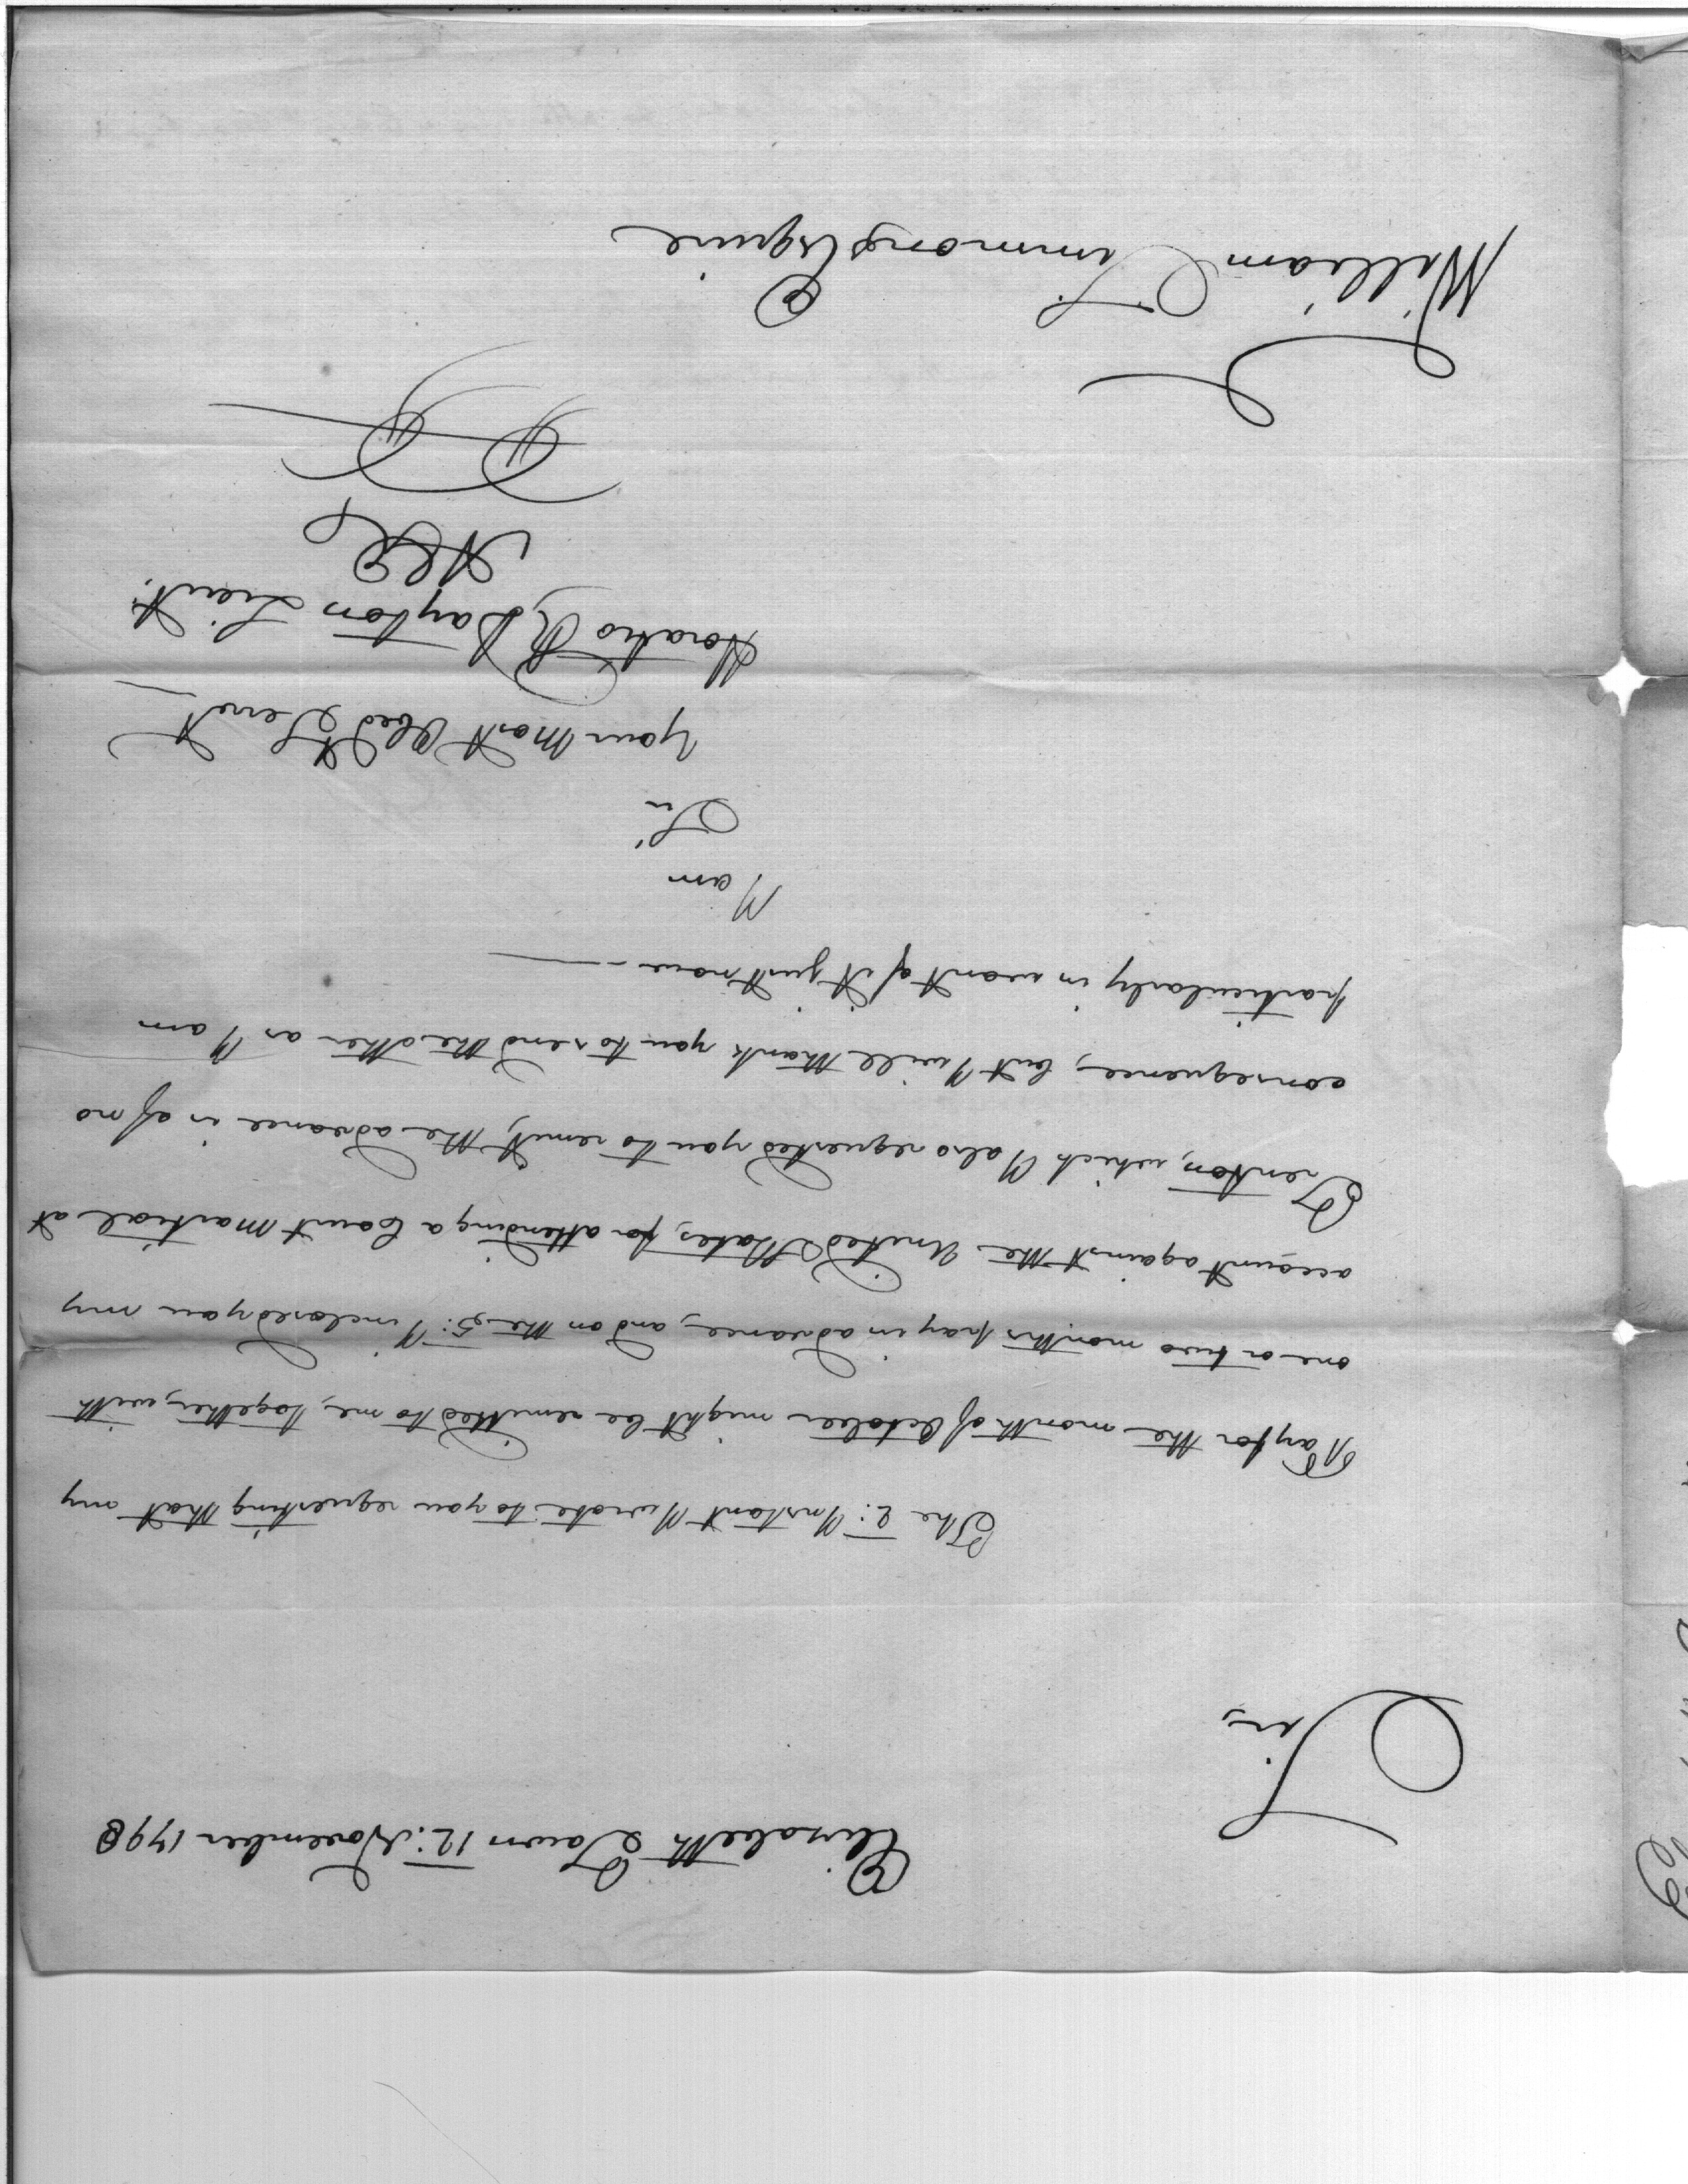 Elizabeth Town 12: November 1798
Sir,
The 2: Instant I wrote to you requesting that my
Pay for the month of October might be remitted to me, together, with
one or two months pay in advance, and on the 5: I inclosed you my
account against the United States, for attending a Court Martial at
Trenton, which I also requested you to remit, the advance is of no
consequence, but I will thank you to send the other as I am
particularly in want of it just now
I am
Sir
Your Most Obedt Servt
Horatio R Dayton Lieut.
William Simmons Esquire